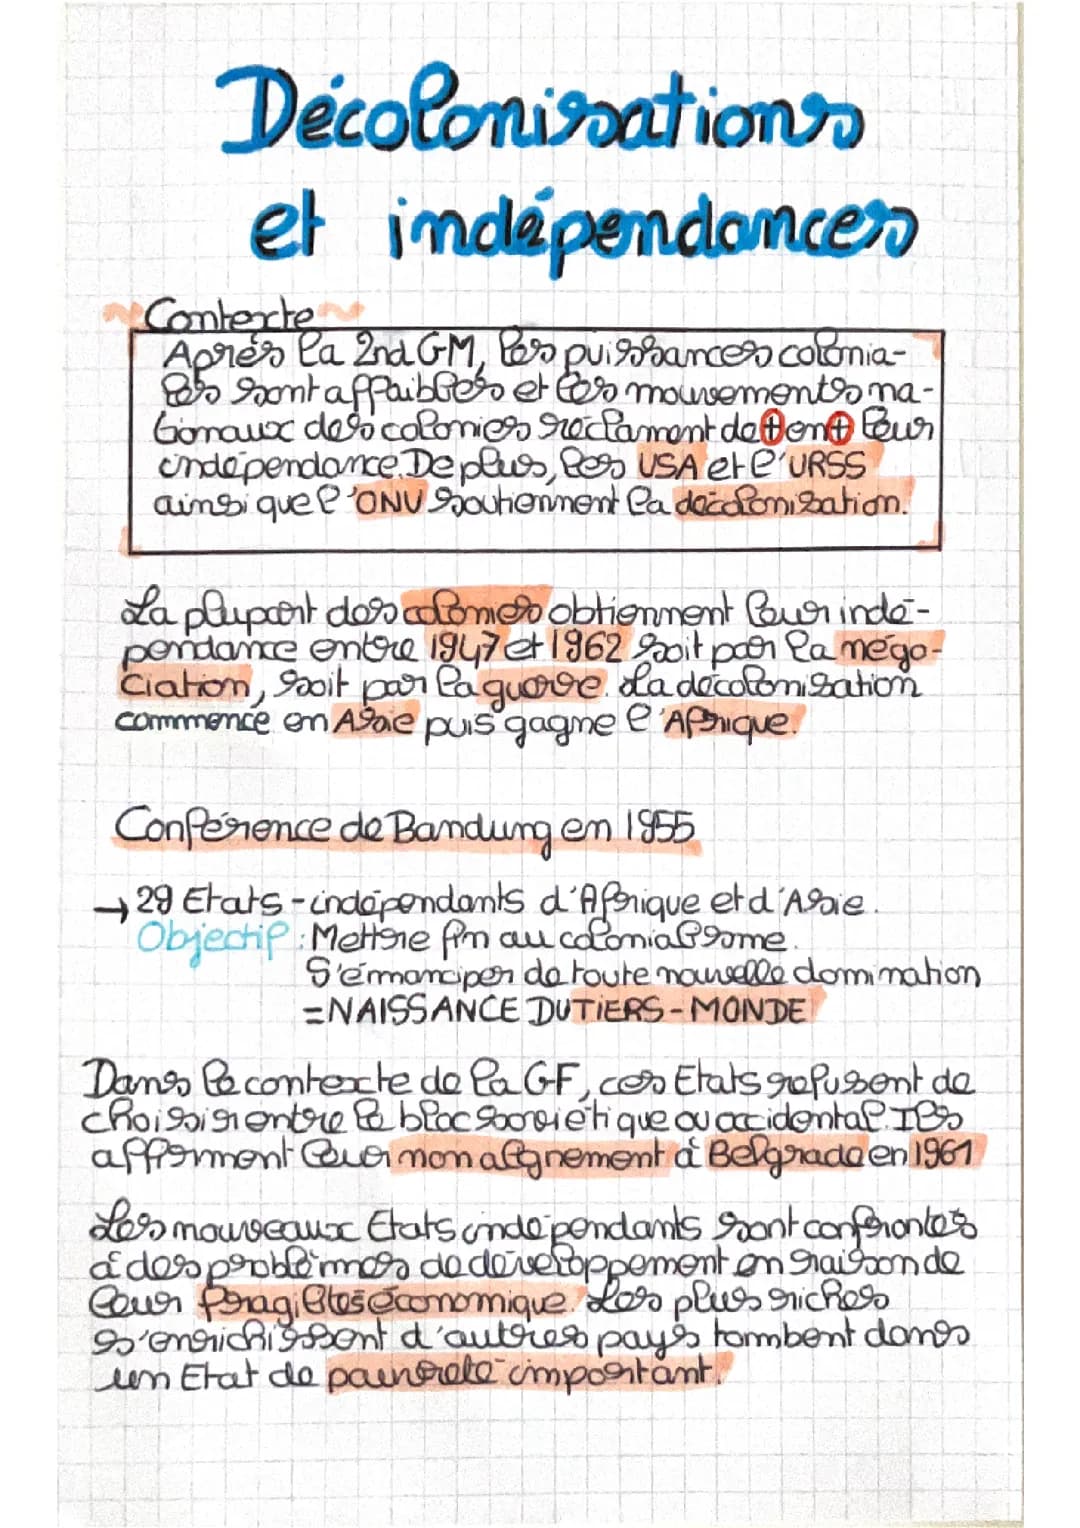 Décolonisations
et indépendances
Contexte
Après la 2nd GM, les puissances colonia-
les sont affaiblies et les mouvements na-
tionaux des colonies réclament de + en + leur
indépendance. De plus, les USA et l'URSS
ainsi que l'ONU soutiennent la décolonisation.
La plupart des colonies obtiennent leur indé-
pendance entre 1947 et 1962 soit par la négo-
ciation, soit par la guerre. La décolonisation
commence en Asie puis gagne l'Afrique.
Conférence de Bandung en 1955
→ 29 Etats - indépendants d'Afrique et d'Asie.
Objectif : Mettre fin au colonialisme.
S'émanciper de toute nouvelle domination
= NAISSANCE DU TIERS-MONDE
Dans le contexte de la GF, ces Etats refusent de
choisir entre le bloc soviétique ou occidental. Ils
affirment leur non alignement à Belgrade en 1961
Les nouveaux Etats indépendants sont confrontés
à des problèmes de développement en raison de
leur fragilités économique. Les plus riches
s'enrichissent d'autres pays tombent dans
un Etat de pauvreté important.